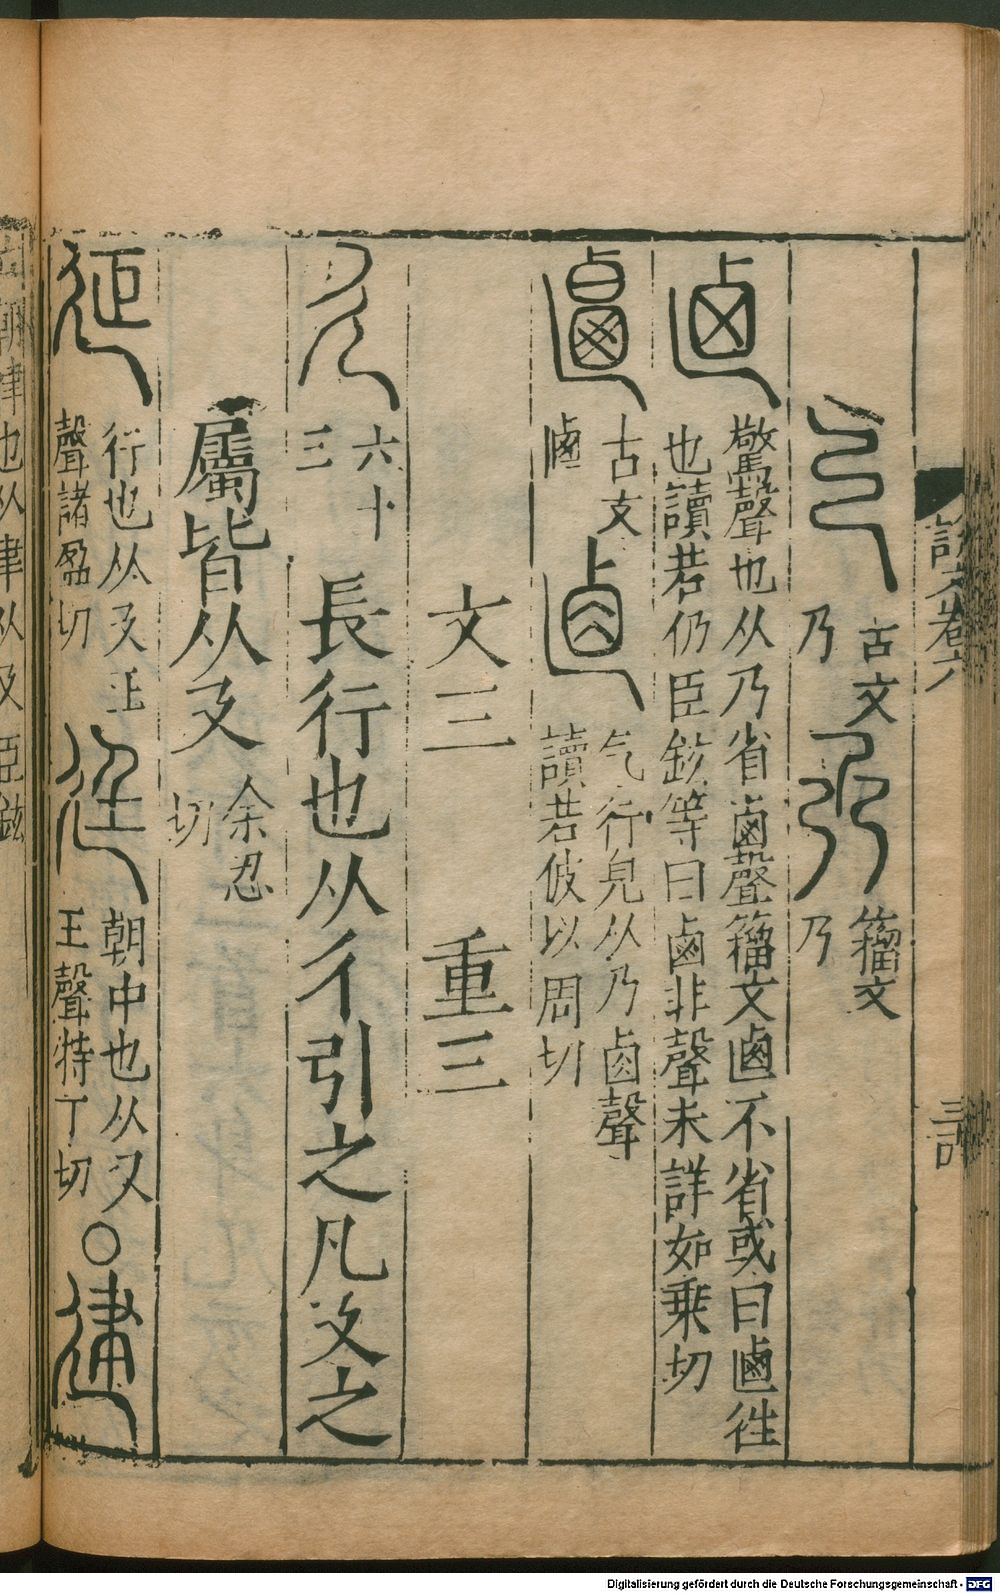 說文卷六
古文乃
籀文乃
驚聲也从乃省卥聲籀文𠧟不省或曰𠧟徃
也讀若仍臣鉉等曰卥非聲未詳如乗切
古文𠧟
气行皃从乃卤聲
讀若攸以周切
文三 重三
六十三
長行也从彳引之凡廴之
屬皆从廴余忍切
行也从廴正
聲諸盈切
朝中也从廴
王聲特丁切○
立朝律也从聿从廴臣鉉
Digitalisierung gefördert durch die Deutsche Forschungsgemeinschaft - DFG